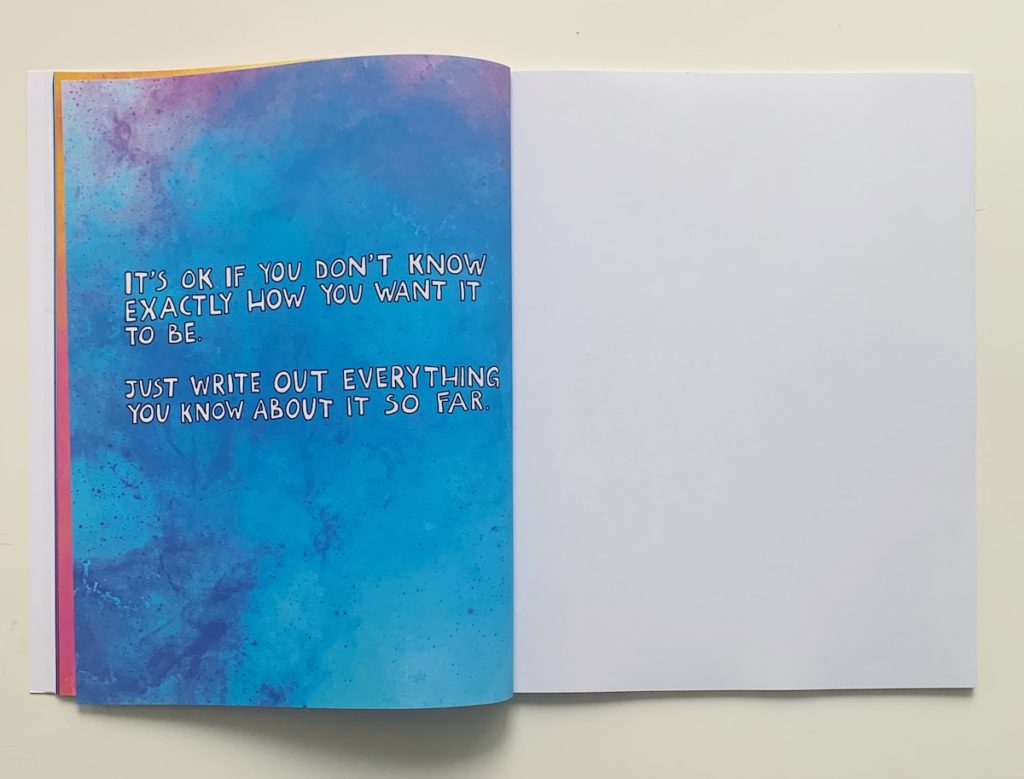 IT'S OK IF YOU DON'T KNOW
EXACTLY HOW YOU WANT IT
TO BE.
JUST WRITE OUT EVERYTHING
YOU KNOW ABOUT IT SO FAR.